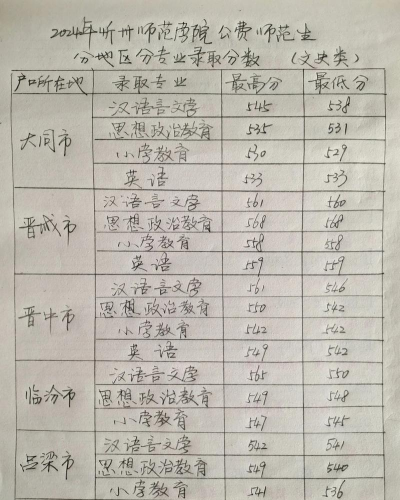 2024年忻州师范学院公费师范生
分地区分专业录取分数 (文史类)
户口所在地 录取专业 最高分 最低分
大同市 汉语言文学 545 538
思想政治教育 535 531
小学教育 530 529
英语 533 533
晋城市 汉语言文学 561 560
思想政治教育 568 568
小学教育 558 558
英语 559 559
晋中市 汉语言文学 561 546
思想政治教育 550 542
小学教育 542 542
英语 549 542
临汾市 汉语言文学 565 550
思想政治教育 549 548
小学教育 547 545
吕梁市 汉语言文学 542 541
思想政治教育 549 540
小学教育 541 536